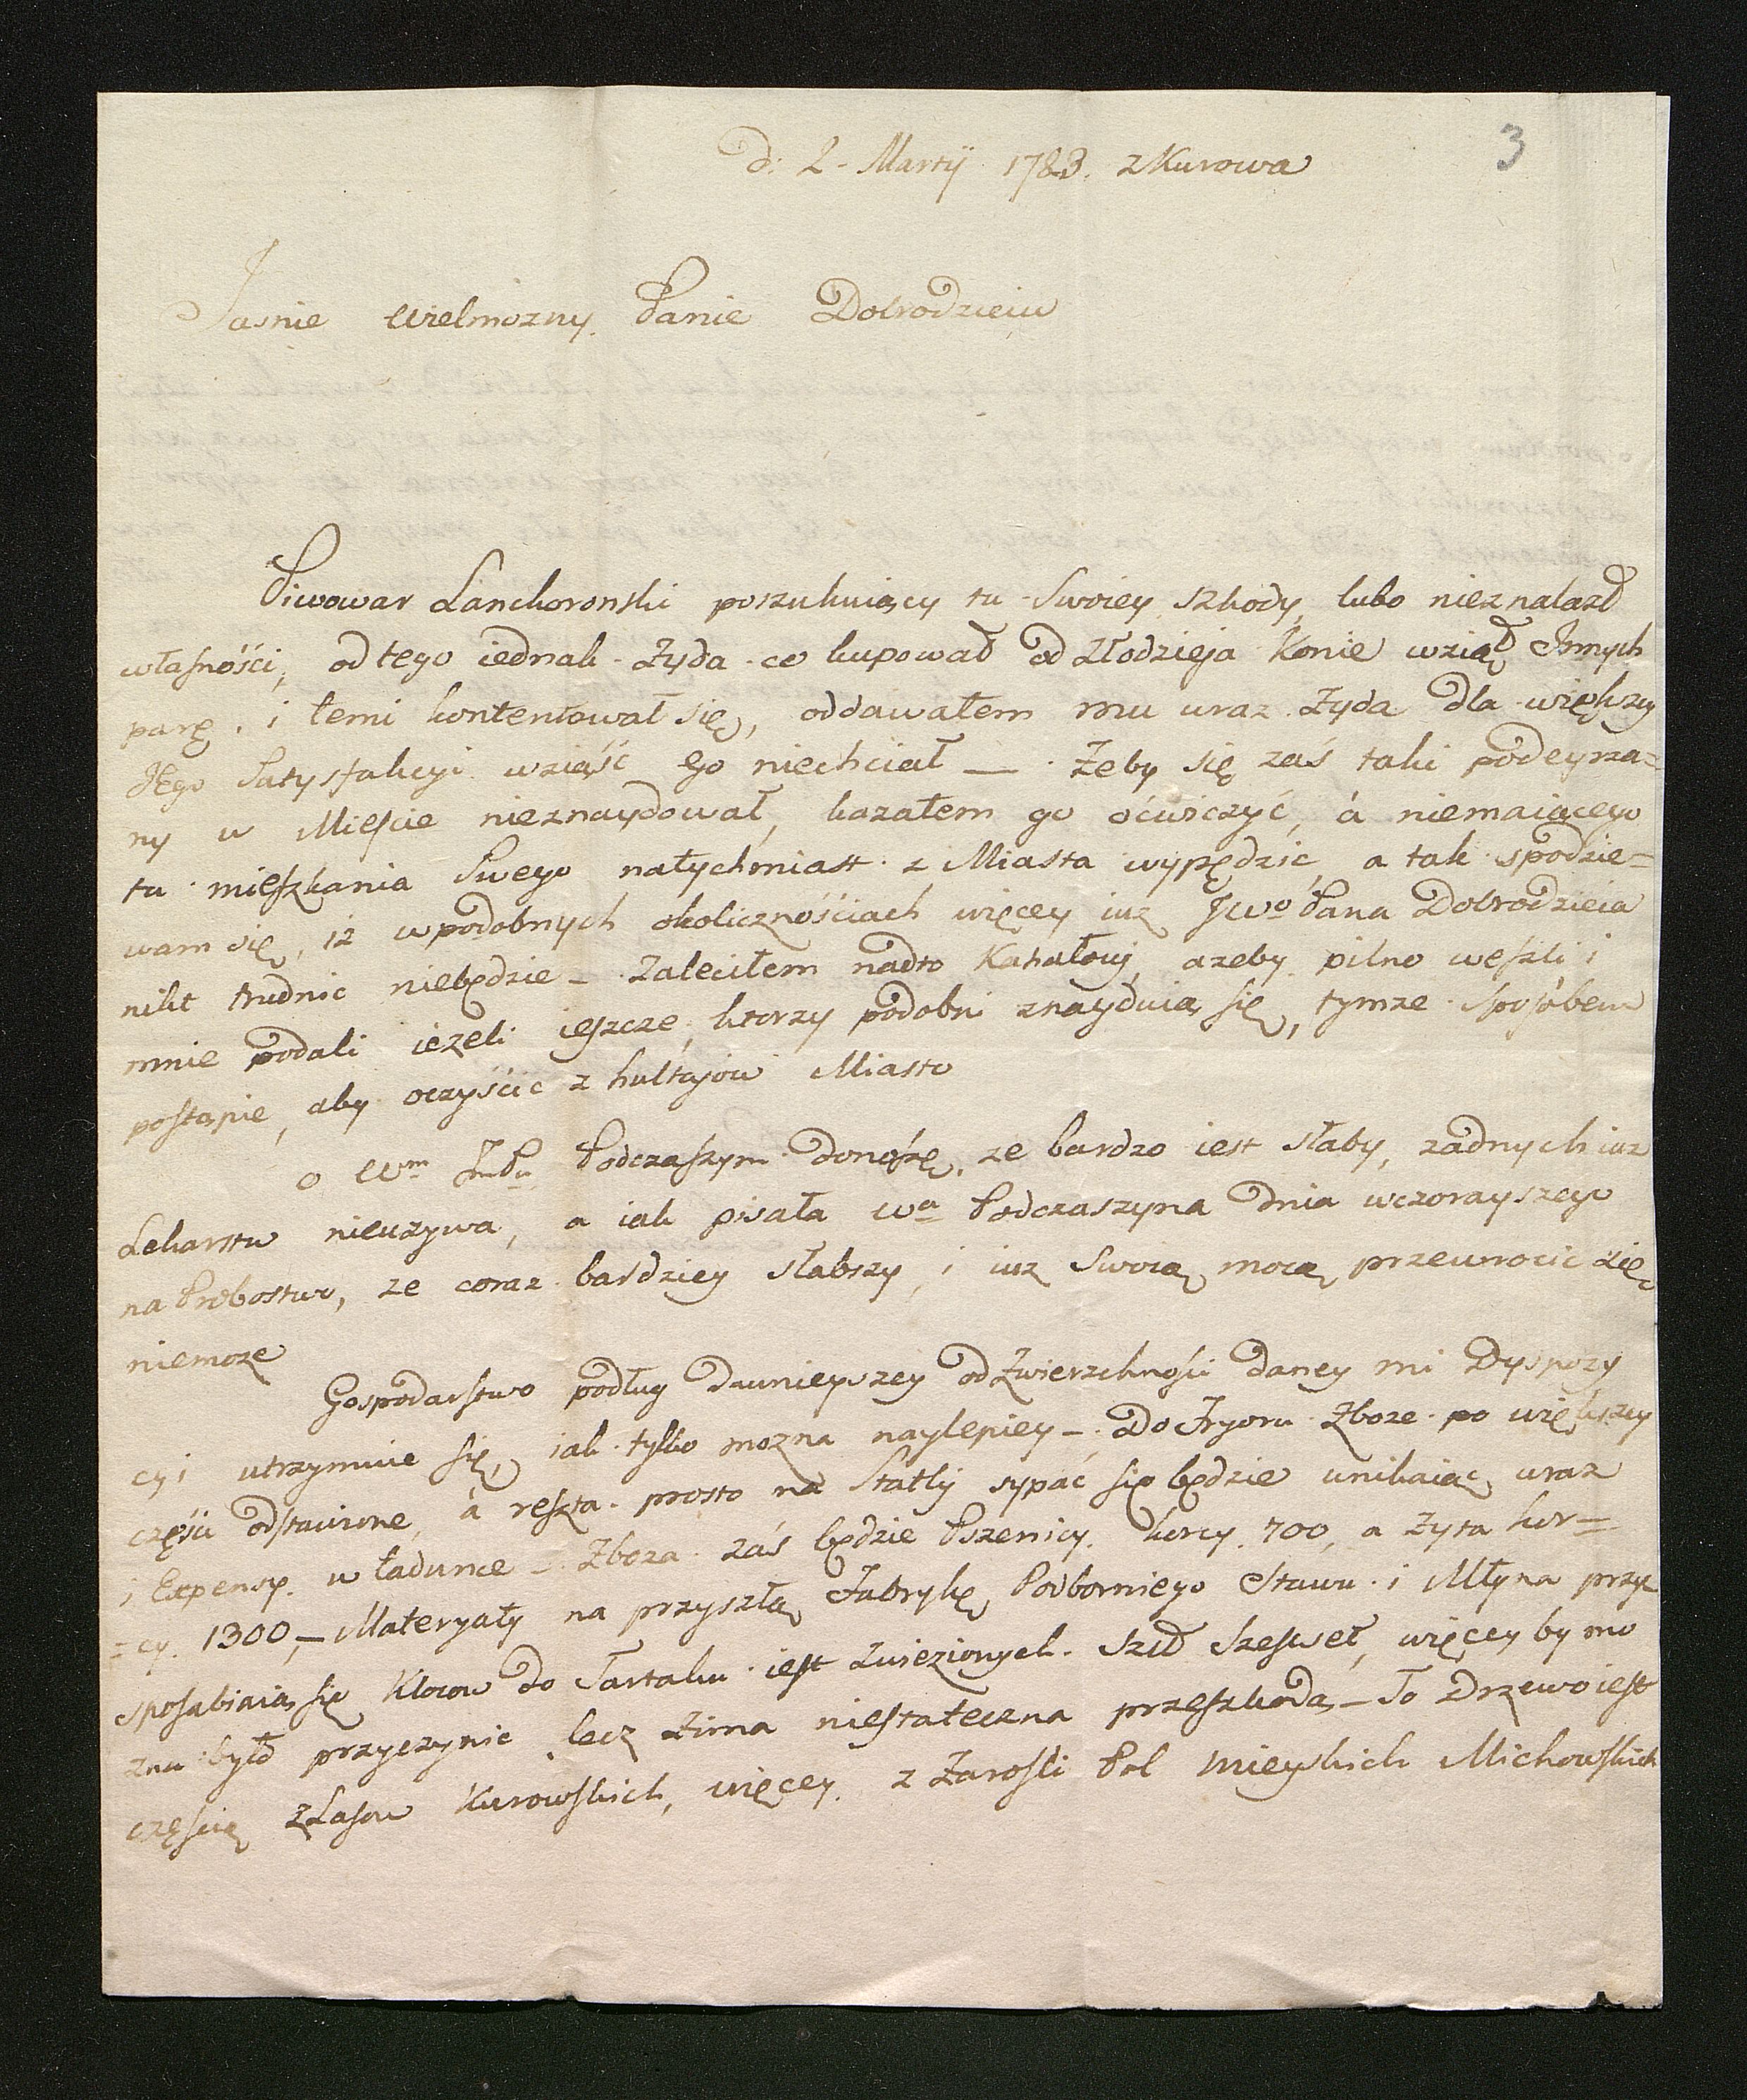 3
d: 2 - Martij 1783. z Kurowa
Jasnie Wielmozny Panie Dobrodzieiu
Piwowar Lanckoronski poszukuiący tu Swoiey szkody, lubo nieznalazł
własności, od tego iednak Zyda co kupował od Złodzieja Konie wziął Innych
parę i temi kontentował się, oddawałem mu wraz Zyda dla większey
Jego Satysfakcyi wziąść ego niechciał — Zeby się zaś taki podeyrza=
ny w Mieście nieznaydował, kazałem go oćwiczyć, á niemaiącego
tu mieszkania Swego natychmiast z Miasta wypędzić, a tak spodzie=
wam się, iż w podobnych okolicznościach więcey iuz JWo Pana Dobrodzieia
nikt trudnic niebędzie — Zaleciłem nadto Kahałowi, azeby pilno weszli i
mnie podali iezeli ieszcze, ktorzy podobni znayduią się, tymze sposobem
postąpie, aby oczyścic z hultajow Miasto
o Wm JmPu Podczaszym donoszę, ze bardzo iest słaby, zadnych iuz
Lekarstw nieuzywa, a iak pisała Wa Podczaszyna dnia wczorayszego
na Probostwo, ze coraz bardziey słabszy, i iuz Swoią mocą przewrocic się
niemoze
Gospodarstwo podług dawnieyszey od Zwierzchności daney mi Dyspozy
cyi utrzymuie się, iak tylko mozna naylepiey — Do Fryoru Zboze po większey
części odstawione, á reszta prosto na Statki sypać się będzie unikaiąc wraz
i Expensy w ładunce — Zboza zaś będzie Pszenicy korcy 700, a Zyta kor=
=cy 1300, — Materyały na przyszłą Fabrykę Podborniego Stawu i Młyna przy
sposabiaią się Klocow do Tartaku iest zwiezionych Sztuk Szescset, więcey by mo
zna było przyczynic, lecz Zima niestateczna przeszkodą — To Drzewo iest
częścią z Lasow Kurowskich, więcey z Zarosli Pol mieyskich Michowskich